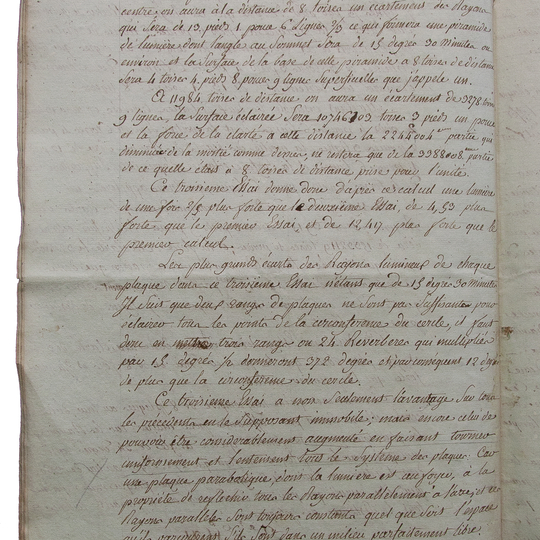 centre on aura à la distance de 8 toises un ecartement des Rayons
qui Sera de 13 pieds 1 pouce 6 lignes 2/3 ce qui formera une piramide
de lumiere dont l'angle au Sommet Sera de 15 degrés 30 minutes ou
environ et la Surface de la base de cette piramide a 8 toises de distance
Sera 4 toises 4 pieds 8 pouces 9 lignes Superficielle que j'appele un.
A 11984 toises de distance on aura un ecartement de 3278 toises
9 lignes, la surface eclairée Sera 10746103 toises 3 pieds un pouce
et la force de la clarté a cette distance la 2244004eme partie qui
diminuée de la moitié comme dessus, ne restera que de la 3388808eme partie
de ce quelle etais à 8 toises de distance prise pour l'unité.
Ce troisieme Essai donne donc d'après ce calcul une lumiere
de une fois 2/3 plus forte que le deuxième Essai, de 4,53 plus
forte que le premier Essai, et de 12,49 plus forte que le
premier calcul.
Les plus grands écarts des Rayons lumineux de chaque
plaque dans ce troisieme Essai n'etans que de 15 degrés 30 minutes
Il Suit que deux rangs de plaques ne Sont pas Suffisants pour
eclairer tous les points de la circonference du cercle, il faut
donc en trois rangs ou 24 Reverberes qui multipliés
par 15 degrés 1/2 donneront 372 degrés et par consequent 12 degrés
de plus que la circonference du cercle.
Ce troisieme Essai a non Seulement l'avantage Sur tous
les précédents en le Supposant immobile; mais encore celui de
pouvoir être considerablement augmenté en faisant tourner
uniformement et lentement tout le Systeme des plaques. Car
une plaque parabolique, dont la lumiere est au foyer, à la
propriété de reflechir tous les Rayons parallelement a l'axe, et ces
Rayons paralleles Sont toujours constants quel que Soit l'espace
qu'ils parcourent S'ils Sont dans un milieu parfaitement libre.